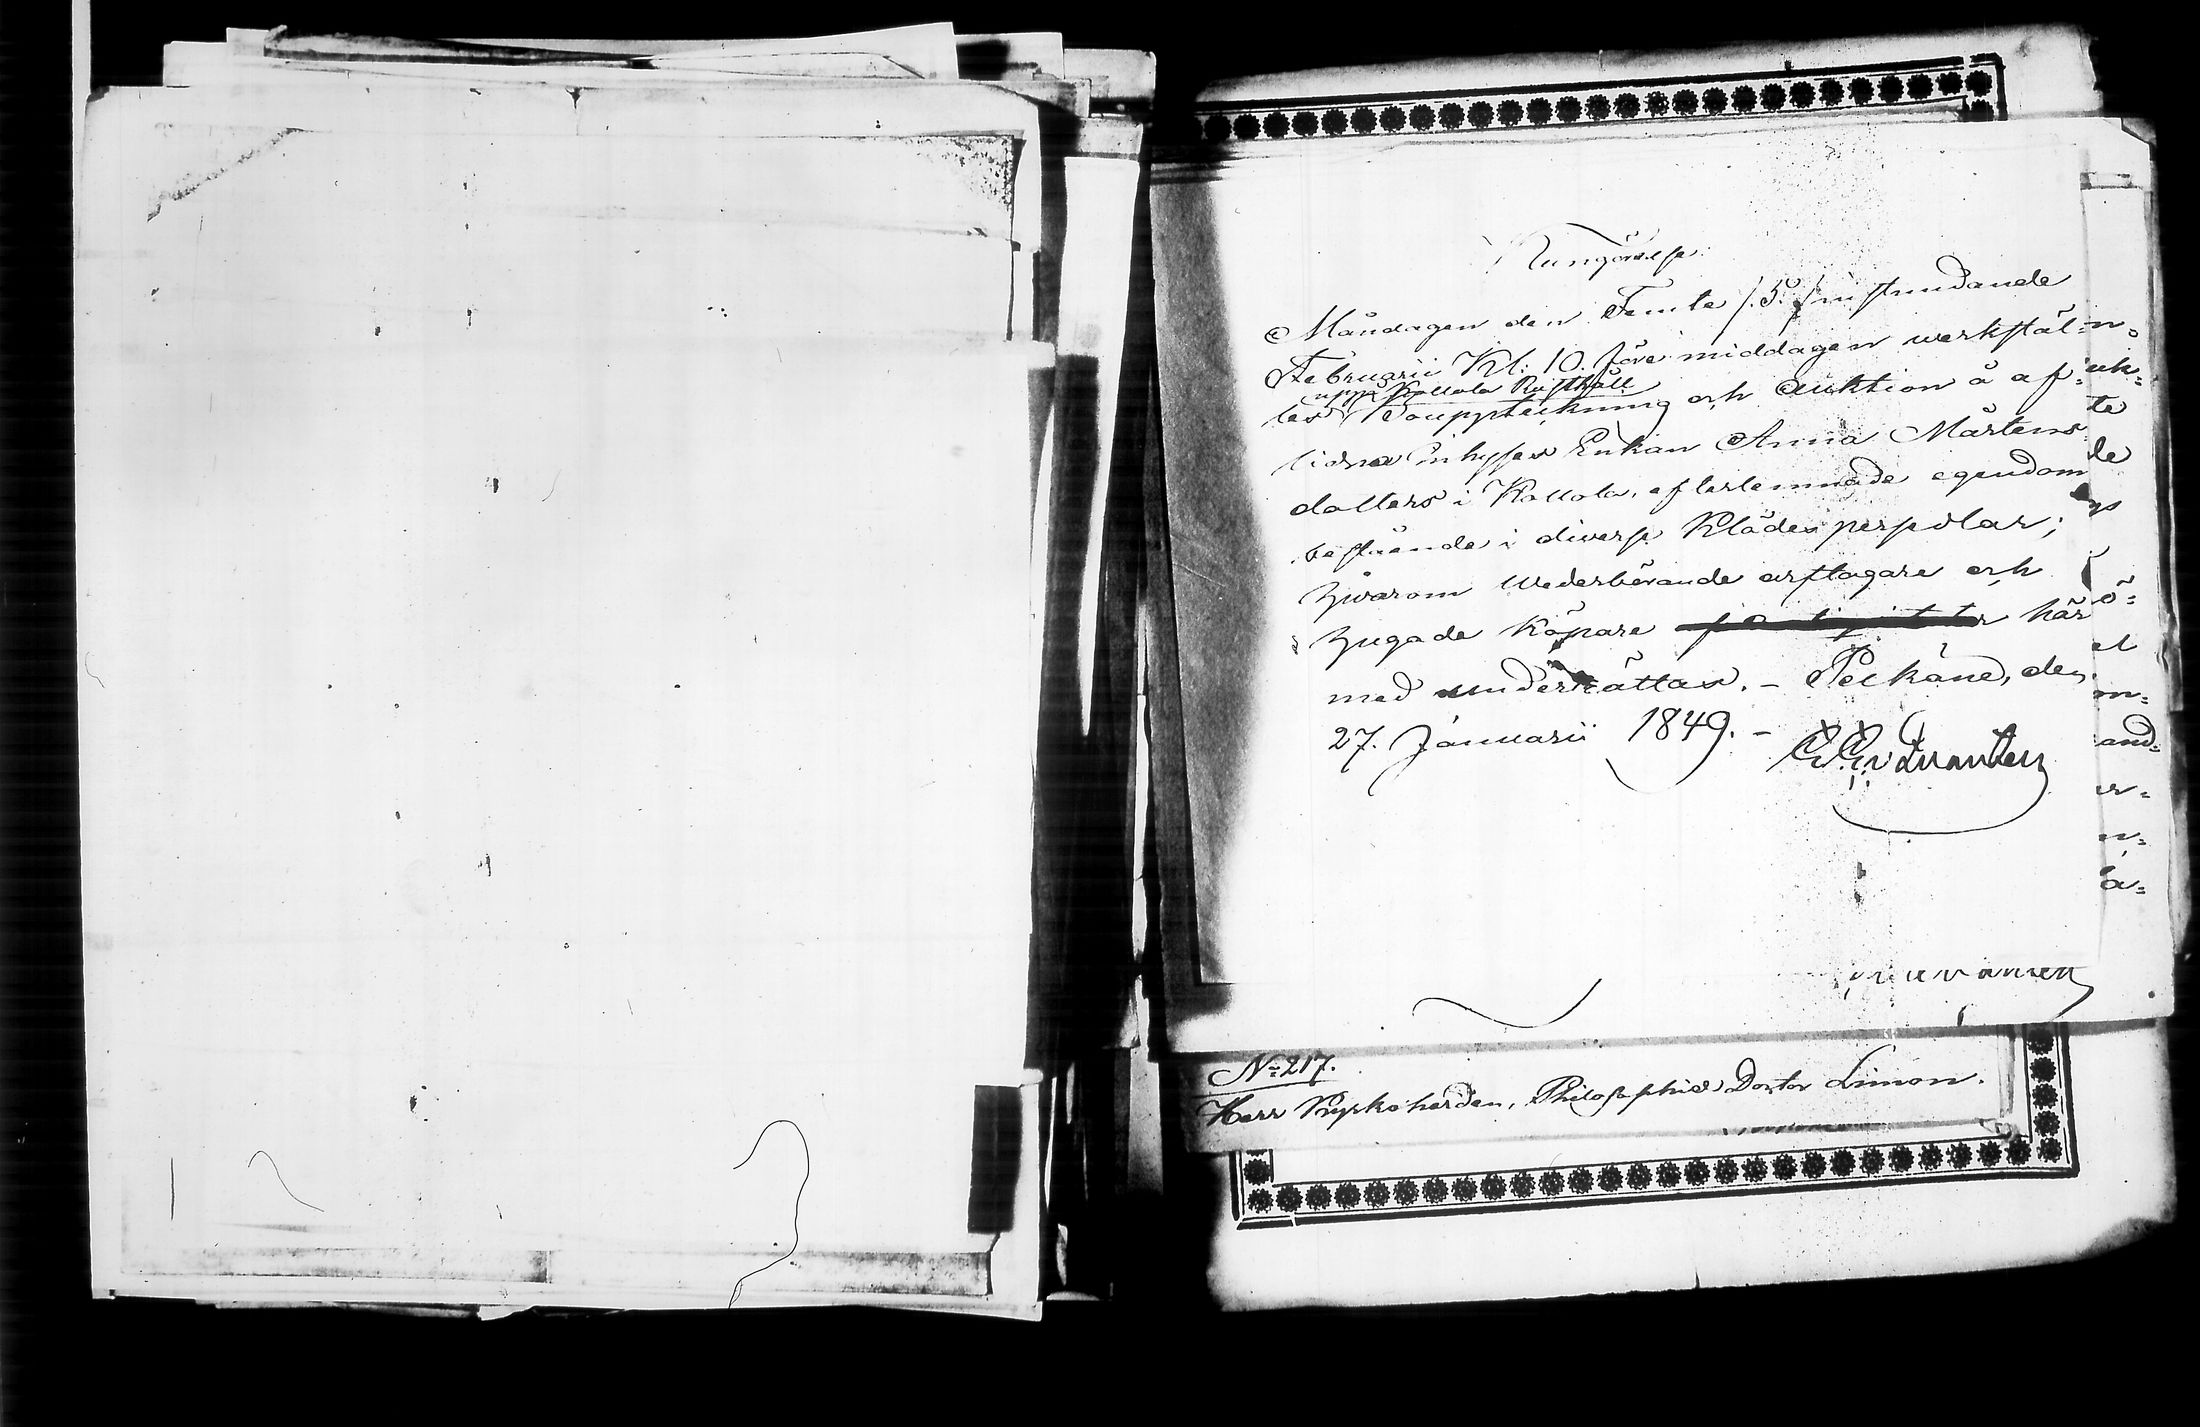 Kungörelse.
Måndagen den Femte /.5./ instundande
Februarii Kl: 10. före middagen werkstäl-
upp Kollola Rusthåll
les Bouppteckning och Auktion å af-
lidna Inhyses Enkan Anna Mårtens
dotters i Kollola, efterlemnade egendom
bestående i diverse Klädes persedlar;
hwarom wederbörande arftagare och
hugade köpare här
med underrättas. – Pelkäne, den
27. Januarii 1849. –
n-
te
de
ö-
et
m-
and-
er-
n-
a-
No 217.
Herr Kyrkoherden, Philosophie Doctor Limon.